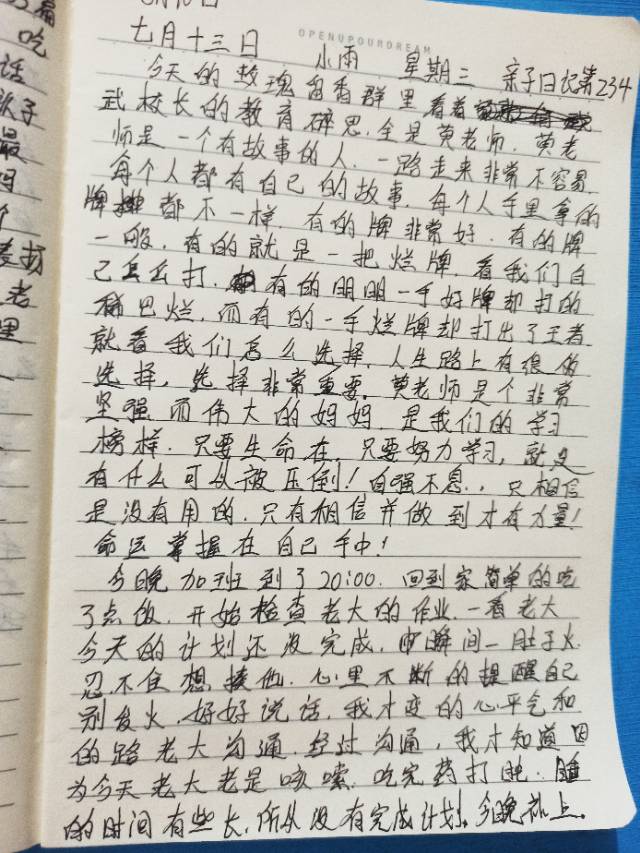 OPENYOURDREAM
七月十三日 小雨 星期三 亲子日记第234
今天的玫瑰留香群里看着
武校长的教育碎思,全是黄老师,黄老
师是一个有故事的人,一路走来非常不容易,
每个人都有自己的故事,每个人手里拿的
牌都不一样,有的牌非常好,有的牌
一般,有的就是一把烂牌,看我们自
己怎么打,有的明明一手好牌却打的
稀巴烂,而有的一手烂牌却打出了王者,
就看我们怎么选择,人生路上有很多
选择,选择非常重要,黄老师是个非常
坚强而伟大的妈妈,是我们的学习
榜样,只要生命在,只要努力学习,就是
有什么可以被压倒!自强不息,只相信
是没有用的,只有相信并做到才有力量!
命运掌握在自己手中!
今晚加班到了20:00,回到家简单的吃
了点饭,开始检查老大的作业,一看老大
今天的计划还没完成,瞬间一肚子火,
忍不住想揍他,心里不断的提醒自己
别发火,好好说话,我才变的心平气和
的跟老大沟通,经过沟通,我才知道因
为今天老大老是咳嗽,吃完药打盹,睡
的时间有些长,所以没有完成计划,今晚补上。
吃
话
孩子
最
吗
个
打
老
里